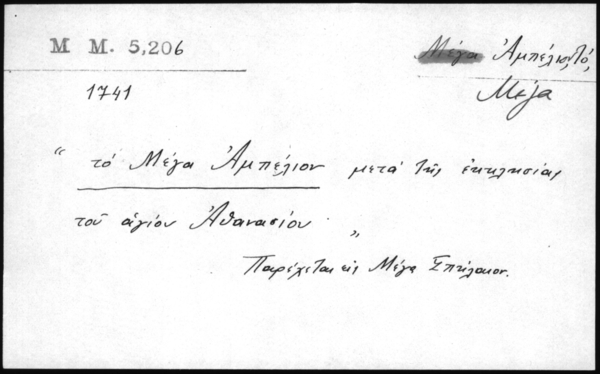 M M. 5,206
Μέγα Ἀμπέλιον, Τό,
Μέγα
1741
" τό Μέγα Ἀμπέλιον μετά τῆς ἐκκλησίας
τοῦ ἁγίου Ἀθανασίου "
Παρέχεται εἰς Μέγα Σπήλαιον.